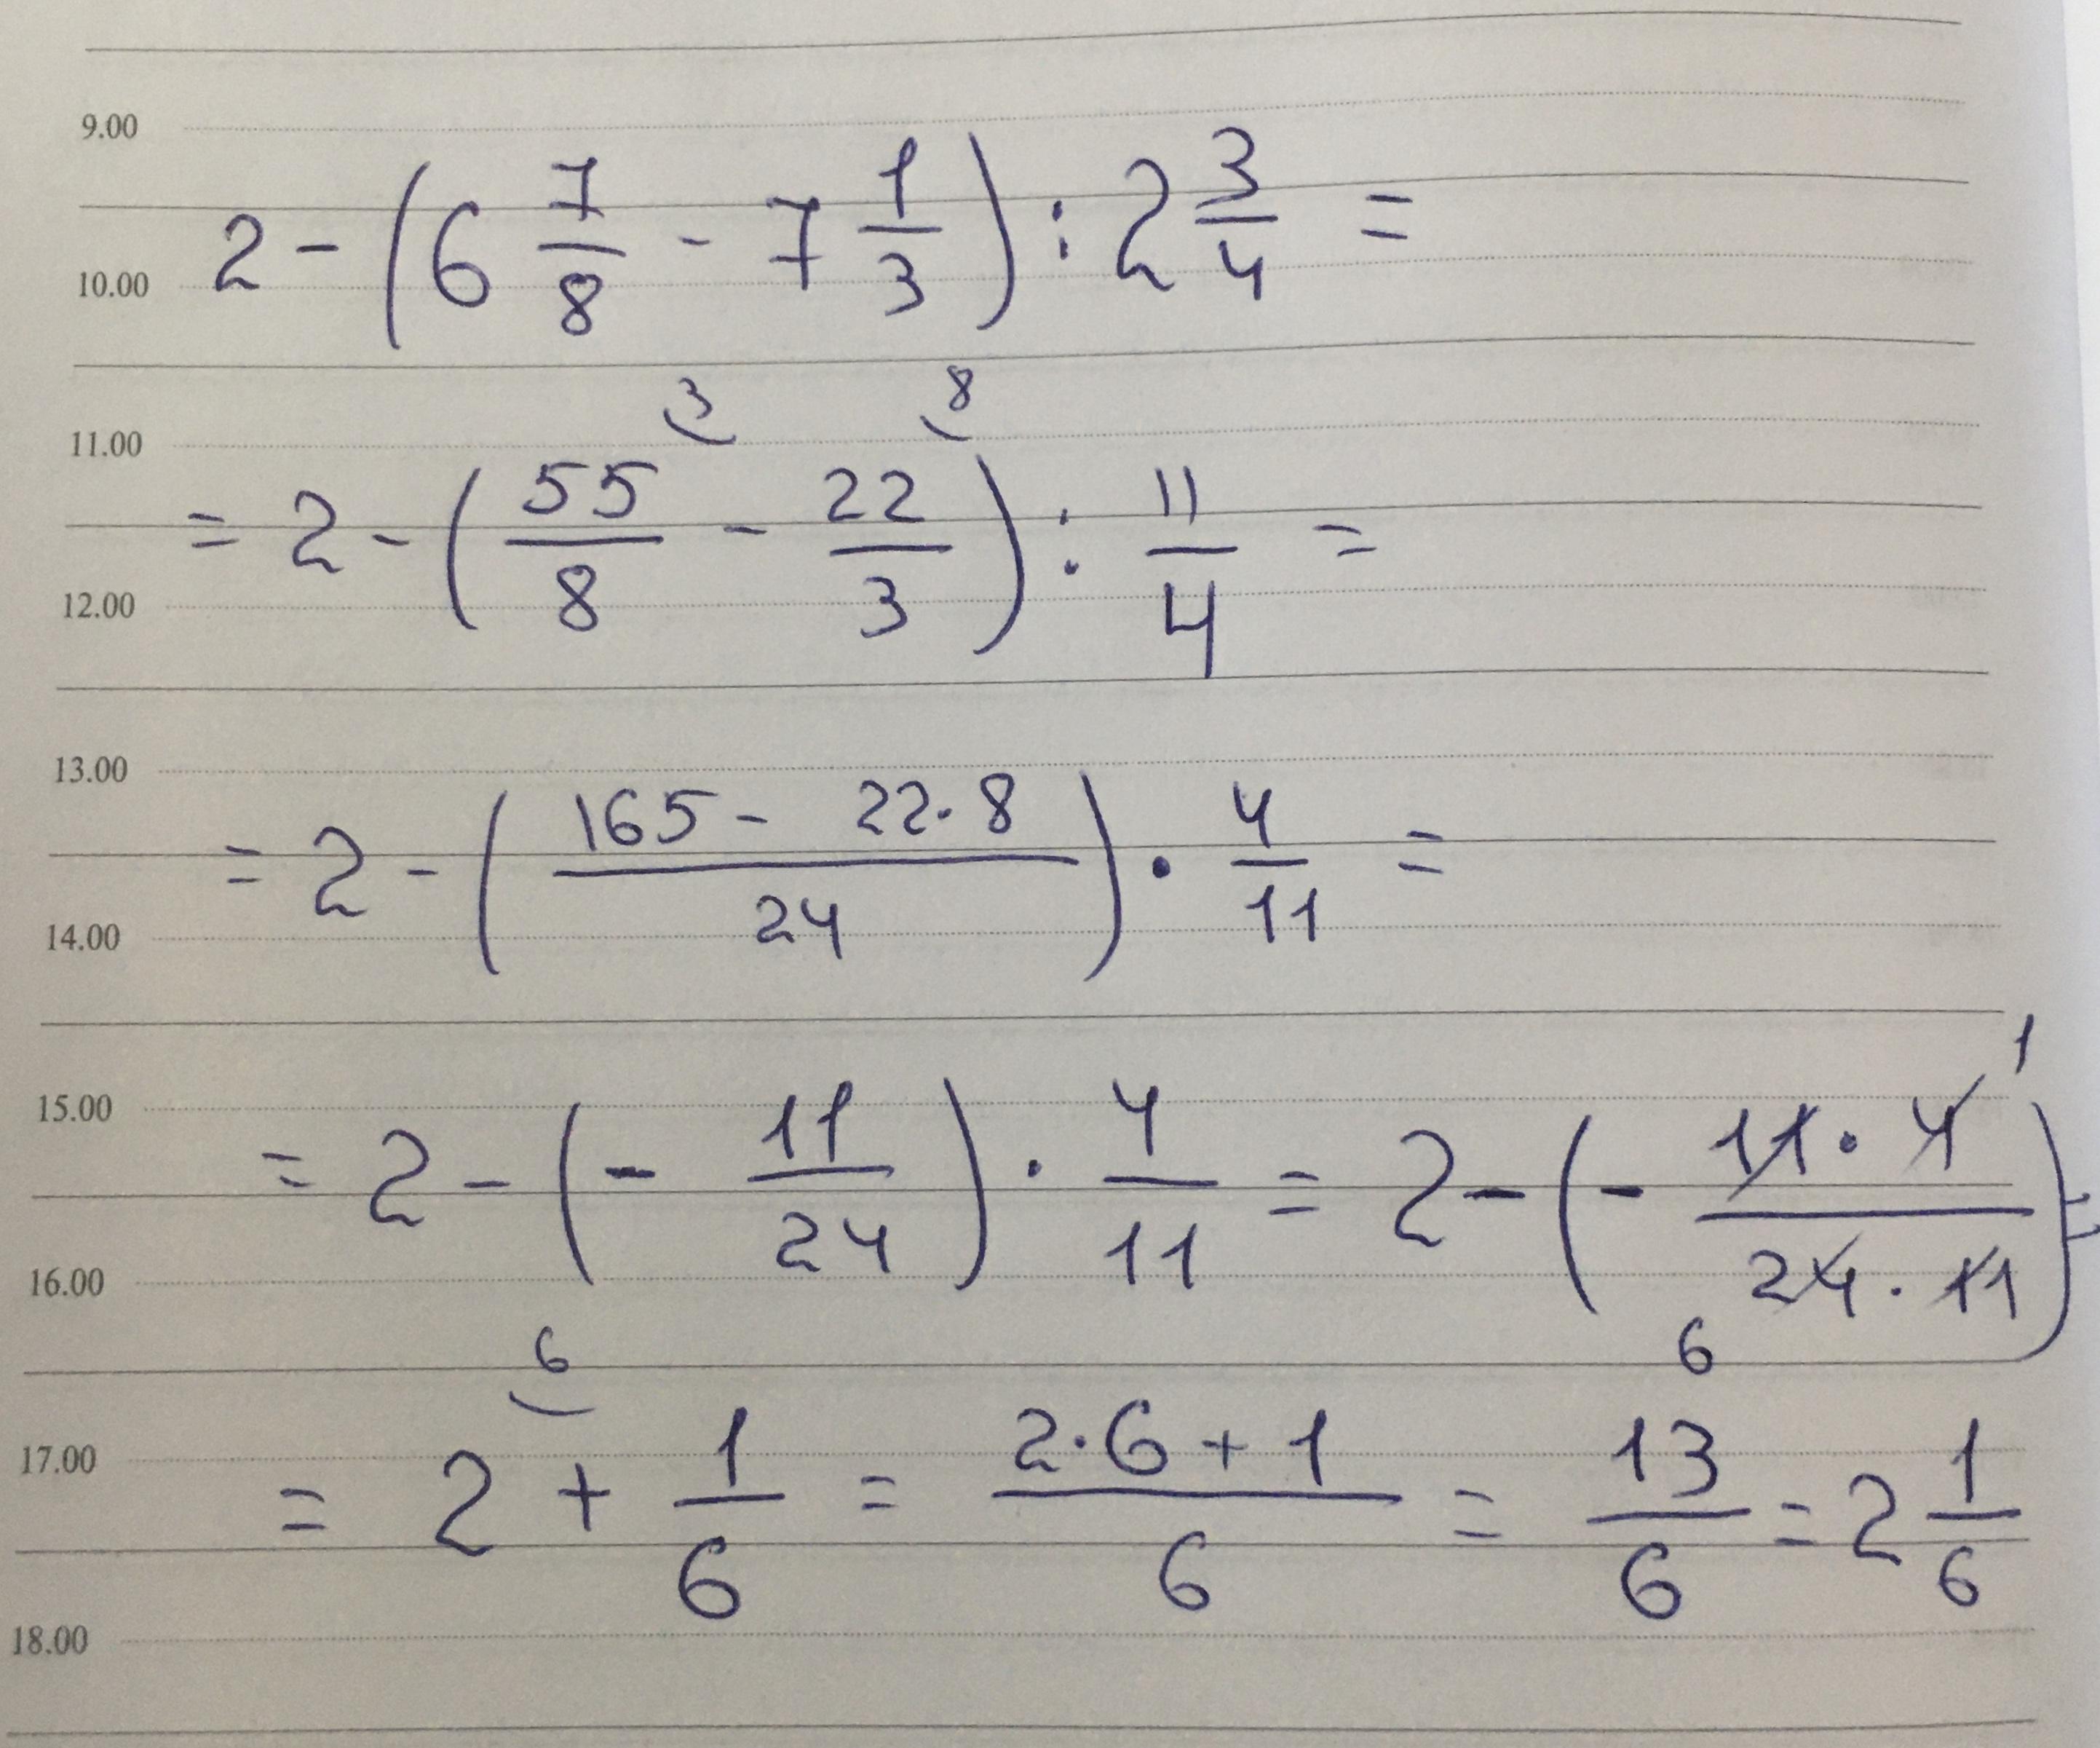 9.00
2 - (6 7/8 - 7 1/3) : 2 3/4 =
10.00
3 8
11.00
= 2 - (55/8 - 22/3) : 11/4 =
12.00
13.00
= 2 - ((165 - 22·8)/24) · 4/11 =
14.00
1
15.00
= 2 - (- 11/24) · 4/11 = 2 - (- (11·4)/(24·11)) =
16.00
6 6
17.00
= 2 + 1/6 = (2·6+1)/6 = 13/6 = 2 1/6
18.00